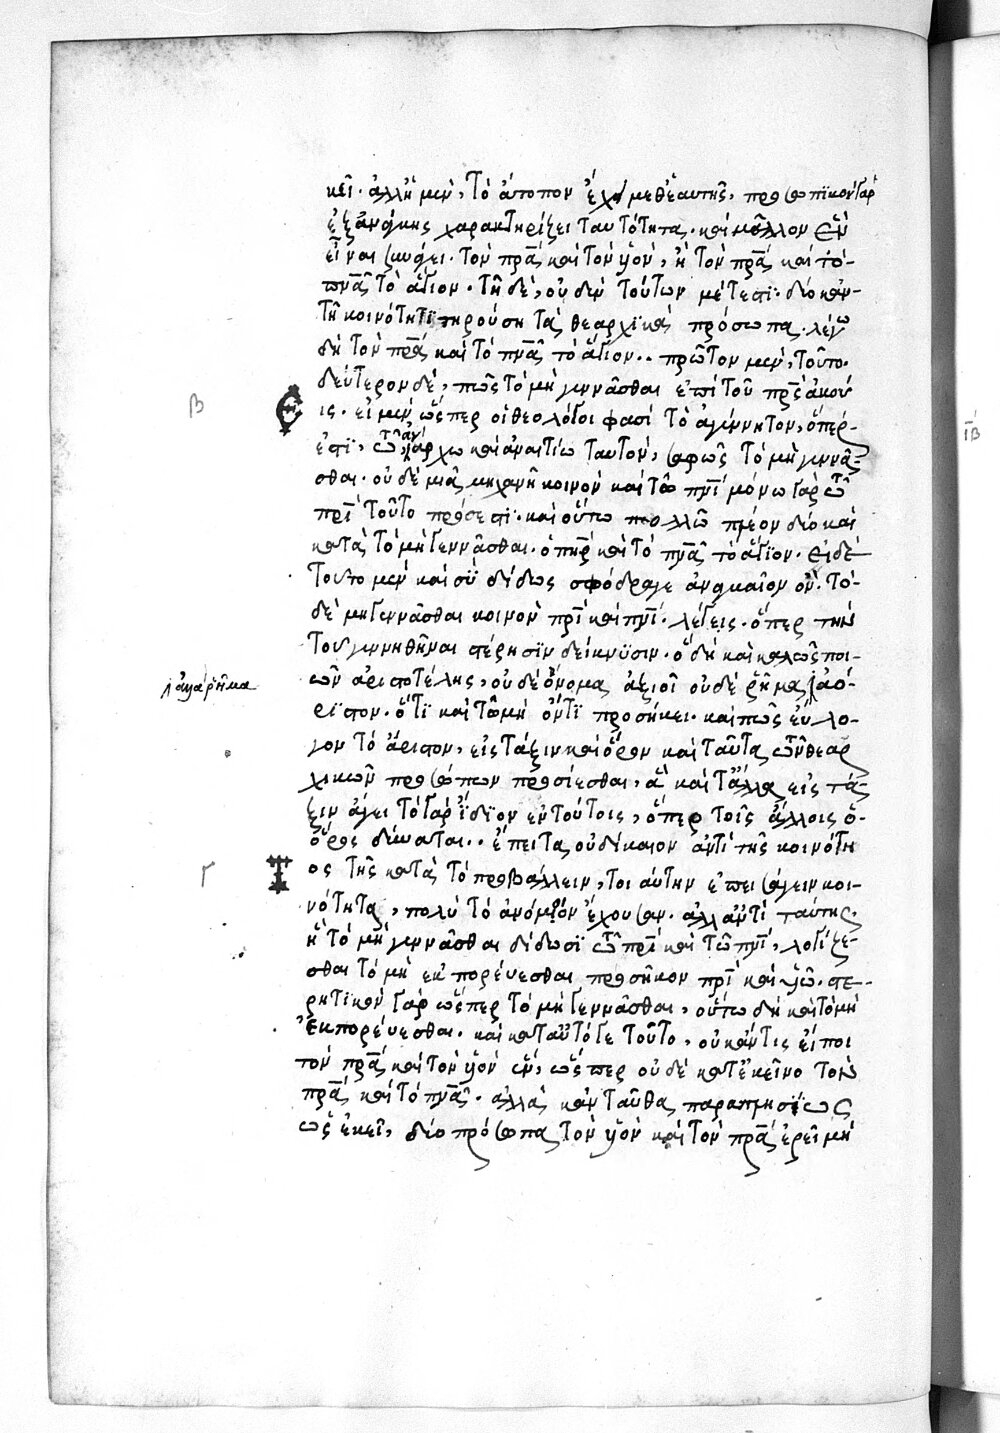 κεῖ· ἀλλ' ἡ μὲν, τὸ ἄτοπον ἔχει μεθ' ἑαυτῆς, προσωπικὸν γὰρ
ἐξ ἀνάγκης χαρακτηρίζει ταυτότητα. καὶ μᾶλλον ἓν
εἶναι συνάγει. τὸν πρ̅α καὶ τὸν υἱὸν, ἢ τὸν πρ̅α καὶ τὸ
πν̅α τὸ ἅγιον. τῇ δὲ, οὐδὲν τούτων μέτεστι. διὸ κἀν
τῇ κοινότητι τηρούσῃ τὰ θεαρχικὰ πρόσωπα. λέγω
δὴ τὸν πρ̅α καὶ τὸ πν̅α τὸ ἅγιον.. πρῶτον μὲν, τοῦτο.
δεύτερον δὲ, πῶς τὸ μὴ γεννᾶσθαι ἐπὶ τοῦ πρ̅ς ἀκού
β
εις. εἰ μὲν ὥσπερ οἱ θεολόγοι φασὶ τὸ ἀγέννητον, ὅπερ
ἐστὶ, τῶ ἀνάρχω καὶ ἀναιτίω ταυτὸν, σαφῶς τὸ μὴ γεννᾶ
σθαι. οὐδεμιᾷ μηχανῇ κοινὸν καὶ τῶ πν̅ι μόνω γὰρ τῶ
πρ̅ι τοῦτο πρόσεστι. καὶ οὕπω πολλῶ πλέον διὸ καὶ
κατὰ τὸ μὴ γεννᾶσθαι. ὁ πη̅ρ καὶ τὸ πν̅α τὸ ἅγιον. εἰ δὲ
τοῦτο μὲν καὶ σὺ δίδως σφόδρα γε ἀναγκαῖον ὄν. τὸ
δὲ μὴ γεννᾶσθαι κοινὸν πρ̅ι καὶ πν̅ι. λέγεις. ὅπερ τὴν
τοῦ γεννηθῆναι στέρησιν δείκνυσιν. ὃ δὴ καὶ καλῶς ποι
λ αλλα ῥῆμα
ῶν ἀριστοτέλης, οὐδὲ ὄνομα ἀξιοῖ οὐδὲ ῥῆμα ἀό
ριστον. ὅτι καὶ τῶ μὴ ὄντι προσήκει. καὶ πῶς εὔλο
γον τὸ ἄριστον, εἰς τάξιν καὶ ὅρον καὶ ταῦτα τῶν θεαρ
χικῶν προσώπων προσίεσθαι, ἃ καὶ τἄλλα εἰς τά
ξιν ἄγει τὸ γὰρ ἴδιον ἐν τούτοις, ὅπερ τοῖς ἄλλοις ὁ
ὅρος δύναται.. ἔπειτα, οὐ δίκαιον ἀντὶ τῆς κοινότη
Γ
τος τῆς κατὰ τὸ προβάλλειν, τοιαύτην ἐπεισάγειν κοι
νότητα, πολὺ τὸ ἀνόμοιον ἔχουσαν. ἀλλ' ἀντὶ ταύτης,
ἢ τὸ μὴ γεννᾶσθαι δίδωσι τῶ πρ̅ι καὶ τῶ πν̅ι, λογίζε
σθαι τὸ μὴ ἐκπορεύεσθαι προσῆκον πρ̅ι καὶ υἱῶ. στε
ρητικὸν γὰρ ὥσπερ τὸ μὴ γεννᾶσθαι, οὕτω δὴ καὶ τὸ μὴ
ἐκπορεύεσθαι. καὶ κατ' αὐτό γε τοῦτο, οὐκ ἄν τις εἴποι
τὸν πρ̅α καὶ τὸν υἱὸν ἓν, ὥσπερ οὐδὲ κατ' ἐκεῖνο τὸν
πρ̅α καὶ τὸ πν̅α. ἀλλὰ κἀνταῦθα παραπλησίως
ὡς ἐκεῖ, δύο πρόσωπα τὸν υἱὸν καὶ τὸν πρ̅α ἐρεῖ μὴ
ιβ